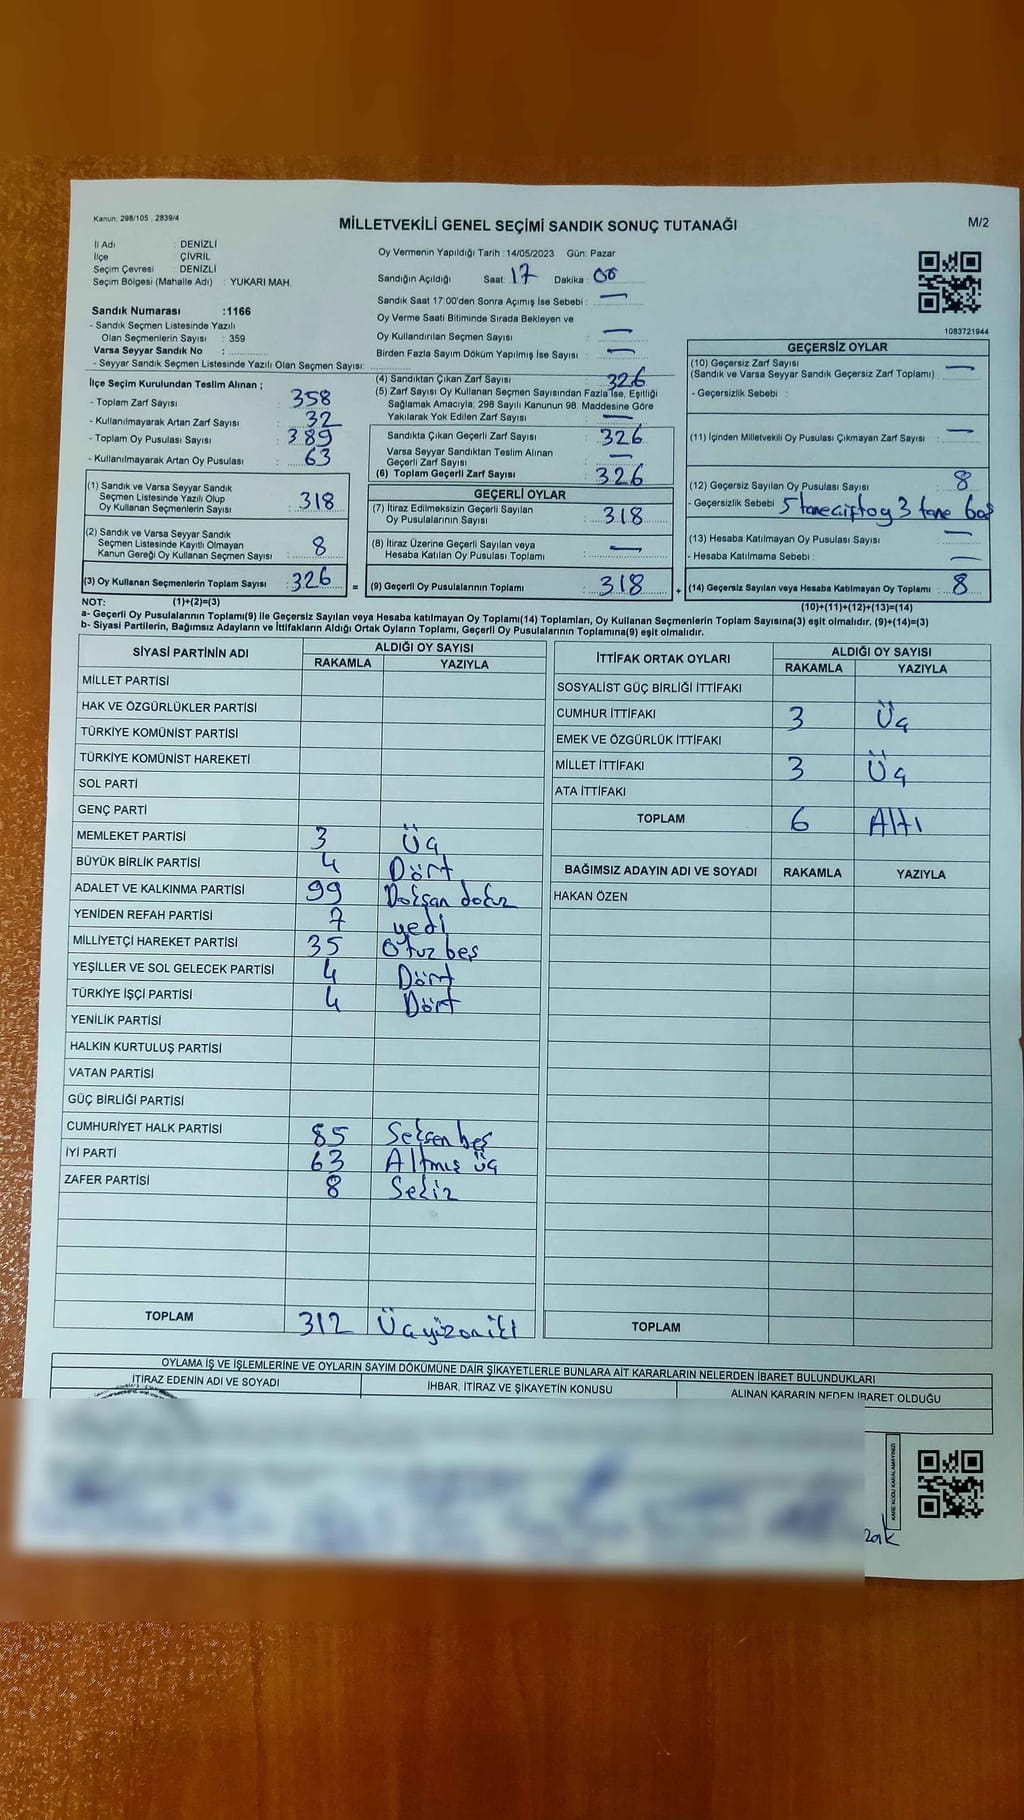 Kanun; 298/105 , 2839/4
MİLLETVEKİLİ GENEL SEÇİMİ SANDIK SONUÇ TUTANAĞI
M/2
İl Adı : DENİZLİ
İlçe : ÇİVRİL
Seçim Çevresi : DENİZLİ
Seçim Bölgesi (Mahalle Adı) : YUKARI MAH.
Oy Vermenin Yapıldığı Tarih : 14/05/2023 Gün: Pazar
Sandığın Açıldığı Saat: 17 Dakika : 00
Sandık Saat 17:00'den Sonra Açımış İse Sebebi : —
Oy Verme Saati Bitiminde Sırada Bekleyen ve
Oy Kullandırılan Seçmen Sayısı : —
Birden Fazla Sayım Döküm Yapılmış İse Sayısı : —
1083721944
Sandık Numarası :1166
- Sandık Seçmen Listesinde Yazılı
Olan Seçmenlerin Sayısı : 359
Varsa Seyyar Sandık No :
- Seyyar Sandık Seçmen Listesinde Yazılı Olan Seçmen Sayısı:
İlçe Seçim Kurulundan Teslim Alınan ;
- Toplam Zarf Sayısı : 358
- Kullanılmayarak Artan Zarf Sayısı : 32
- Toplam Oy Pusulası Sayısı : 389
- Kullanılmayarak Artan Oy Pusulası : 63
(1) Sandık ve Varsa Seyyar Sandık
Seçmen Listesinde Yazılı Olup
Oy Kullanan Seçmenlerin Sayısı : 318
(2) Sandık ve Varsa Seyyar Sandık
Seçmen Listesinde Kayıtlı Olmayan
Kanun Gereği Oy Kullanan Seçmen Sayısı : 8
(3) Oy Kullanan Seçmenlerin Toplam Sayısı : 326 =
(4) Sandıktan Çıkan Zarf Sayısı : 326
(5) Zarf Sayısı Oy Kullanan Seçmen Sayısından Fazla İse, Eşitliği
Sağlamak Amacıyla; 298 Sayılı Kanunun 98. Maddesine Göre
Yakılarak Yok Edilen Zarf Sayısı : —
Sandıkta Çıkan Geçerli Zarf Sayısı : 326
Varsa Seyyar Sandıktan Teslim Alınan
Geçerli Zarf Sayısı : —
(6) Toplam Geçerli Zarf Sayısı : 326
GEÇERLİ OYLAR
(7) İtiraz Edilmeksizin Geçerli Sayılan
Oy Pusulalarının Sayısı : 318
(8) İtiraz Üzerine Geçerli Sayılan veya
Hesaba Katılan Oy Pusulası Toplamı : —
(9) Geçerli Oy Pusulalarının Toplamı : 318 +
GEÇERSİZ OYLAR
(10) Geçersiz Zarf Sayısı
(Sandık ve Varsa Seyyar Sandık Geçersiz Zarf Toplamı) : —
- Geçersizlik Sebebi :
(11) İçinden Milletvekili Oy Pusulası Çıkmayan Zarf Sayısı : —
(12) Geçersiz Sayılan Oy Pusulası Sayısı : 8
- Geçersizlik Sebebi : 5 tane çift oy 3 tane boş
(13) Hesaba Katılmayan Oy Pusulası Sayısı : —
- Hesaba Katılmama Sebebi : —
(14) Geçersiz Sayılan veya Hesaba Katılmayan Oy Toplamı : 8
NOT: (1)+(2)=(3)
(10)+(11)+(12)+(13)=(14)
a- Geçerli Oy Pusulalarının Toplamı(9) ile Geçersiz Sayılan veya Hesaba katılmayan Oy Toplamı(14) Toplamları, Oy Kullanan Seçmenlerin Toplam Sayısına(3) eşit olmalıdır. (9)+(14)=(3)
b- Siyasi Partilerin, Bağımsız Adayların ve İttifakların Aldığı Ortak Oyların Toplamı, Geçerli Oy Pusulalarının Toplamına(9) eşit olmalıdır.
SİYASİ PARTİNİN ADI ALDIĞI OY SAYISI
RAKAMLA YAZIYLA
MİLLET PARTİSİ
HAK VE ÖZGÜRLÜKLER PARTİSİ
TÜRKİYE KOMÜNİST PARTİSİ
TÜRKİYE KOMÜNİST HAREKETİ
SOL PARTİ
GENÇ PARTİ
MEMLEKET PARTİSİ 3 Üç
BÜYÜK BİRLİK PARTİSİ 4 Dört
ADALET VE KALKINMA PARTİSİ 99 Doksan dokuz
YENİDEN REFAH PARTİSİ 7 yedi
MİLLİYETÇİ HAREKET PARTİSİ 35 Otuz beş
YEŞİLLER VE SOL GELECEK PARTİSİ 4 Dört
TÜRKİYE İŞÇİ PARTİSİ 4 Dört
YENİLİK PARTİSİ
HALKIN KURTULUŞ PARTİSİ
VATAN PARTİSİ
GÜÇ BİRLİĞİ PARTİSİ
CUMHURİYET HALK PARTİSİ 85 Seksen beş
İYİ PARTİ 63 Altmış üç
ZAFER PARTİSİ 8 Sekiz
TOPLAM 312 Üçyüzoniki
İTTİFAK ORTAK OYLARI ALDIĞI OY SAYISI
RAKAMLA YAZIYLA
SOSYALİST GÜÇ BİRLİĞİ İTTİFAKI
CUMHUR İTTİFAKI 3 Üç
EMEK VE ÖZGÜRLÜK İTTİFAKI
MİLLET İTTİFAKI 3 Üç
ATA İTTİFAKI
TOPLAM 6 Altı
BAĞIMSIZ ADAYIN ADI VE SOYADI RAKAMLA YAZIYLA
HAKAN ÖZEN
TOPLAM
OYLAMA İŞ VE İŞLEMLERİNE VE OYLARIN SAYIM DÖKÜMÜNE DAİR ŞİKAYETLERLE BUNLARA AİT KARARLARIN NELERDEN İBARET BULUNDUKLARI
İTİRAZ EDENİN ADI VE SOYADI İHBAR, İTİRAZ VE ŞİKAYETİN KONUSU ALINAN KARARIN NEDEN İBARET OLDUĞU
KARE KODU KARALAMAYINIZ!